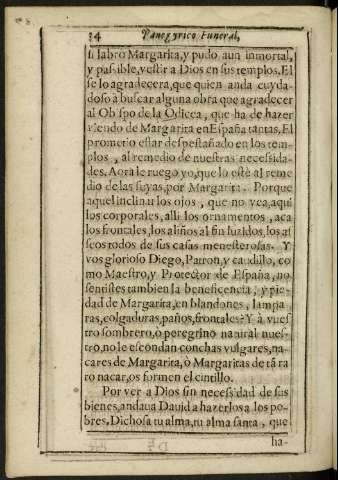 34 Panegyrico Funeral,
si labró Margarita, y pudo aun inmortal,
y passible, vestir a Dios en sus templos. El
se lo agradecera, que quien anda cuyda-
doso a buscar alguna obra que agradecer
al Obispo de la Odicea, que ha de hazer
viendo de Margarita en España tantas. El
prometio estar despestañado en los tem-
plos, al remedio de nuestras necessida-
des. Aora le ruego yo, que lo estè al reme
dio de las suyas, por Margarita. Porque
aquel inclinar los ojos, que no vea, aqui
los corporales, alli los ornamentos, aca
los frontales, los aliños al fin luzidos, los as
seos todos de sus casas menesterosas. Y
vos glorioso Diego, Patron, y caudillo, co
mo Maestro, y Protector de España, no
sentistes tambien la beneficencia, y pie-
dad de Margarita, en blandones, lampa
ras, colgaduras, paños, frontales? Y à vues
tro sombrero, ò peregrino natural nues-
tro, no le escondan conchas vulgares, na-
cares de Margarita, ò Margaritas de tã ra
ro nacar, os formen el cintillo.
Por ver a Dios sin necessidad de sus
bienes, andaua Dauid a hazerlos a los po-
bres. Dichosa tu alma, tu alma santa, que
ha-